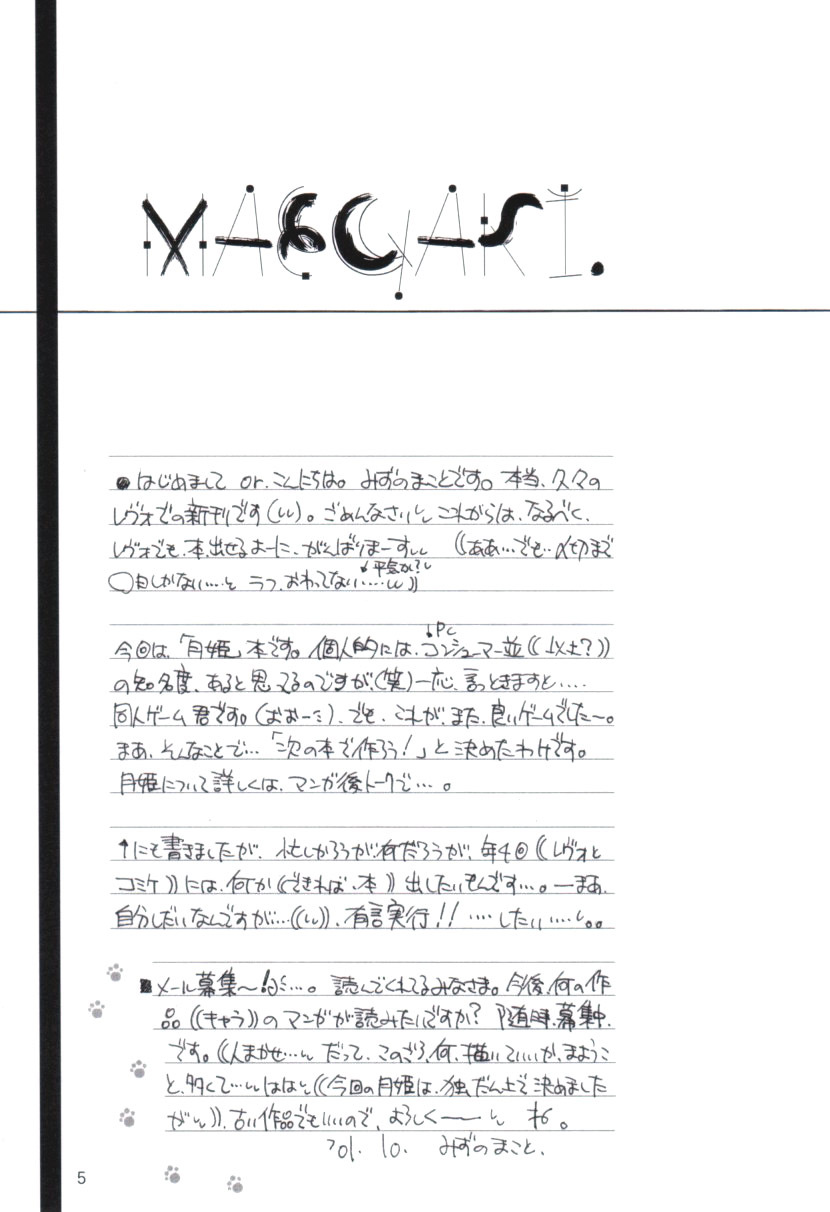 MAGQARI.
●はじめまして or.こんにちは。みずのまことです。本当、久々の
レヴォでの新刊です(いい)。ごめんなさいいい これからは、なるべく、
レヴォでも、本、出せるよーに、がんばりまーすぃぃ ((ああ…でも…〆切まで
↓平気か?い
○日しかない…と ラフ、おわってない…いい))
↓PC
今回は、「月姫」本です。個人的には、コンシューマー並((以上?))
の知名度、あると思ってるのですが、(笑)一応、言っときますと….
同人ゲーム君です。(おおーミ)、でも、これが、また、良いゲームでした〜。
まあ、そんなことで…「次の本で作ろう!」と決めたわけです。
月姫について詳しくは、マンガ後トークで…。
↑にも書きましたが、忙しかろうが、何だろうが、年4回((レヴォと
コミケ))には、何か((できれば、本))出したいもんです…。—まあ、
自分しだいなんですが…((いい))、有言実行!! …したい…い。。
■メール募集〜!…。読んでくれてるみなさま。今後、何の作
品((キャラ))のマンガが読みたいですか?随時、募集中、
です。((人まかせ…いい だって、このごろ、何、描いていいか、まようこ
と、多くて…いい ははい((今回の月姫は、独だん上で決めました
がいい))、古い作品でもいいので、よろしく——いい
'01. 10. みずのまこと、
5